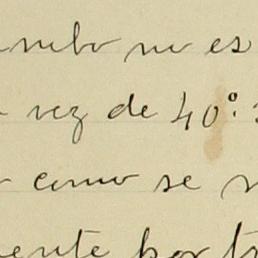 rumbo no es
vez de 40º:
como se
mente por